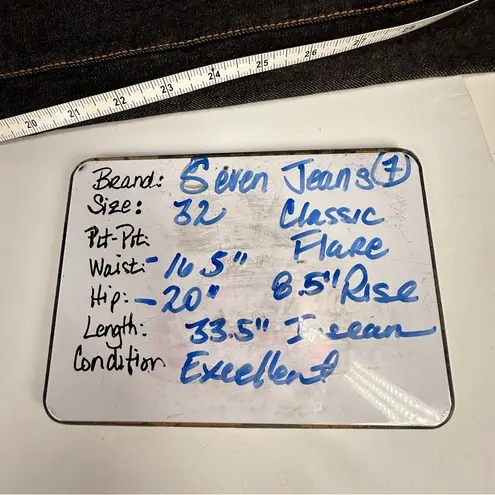 20 21 22 23 24 25 26 27 28
Brand: Seven Jeans (7)
Size: 32 Classic
Pit-Pit: Flare
Waist:- 16.5" 8.5" Rise
Hip:- 20"
Length: 33.5" Inseam
Condition Excellent